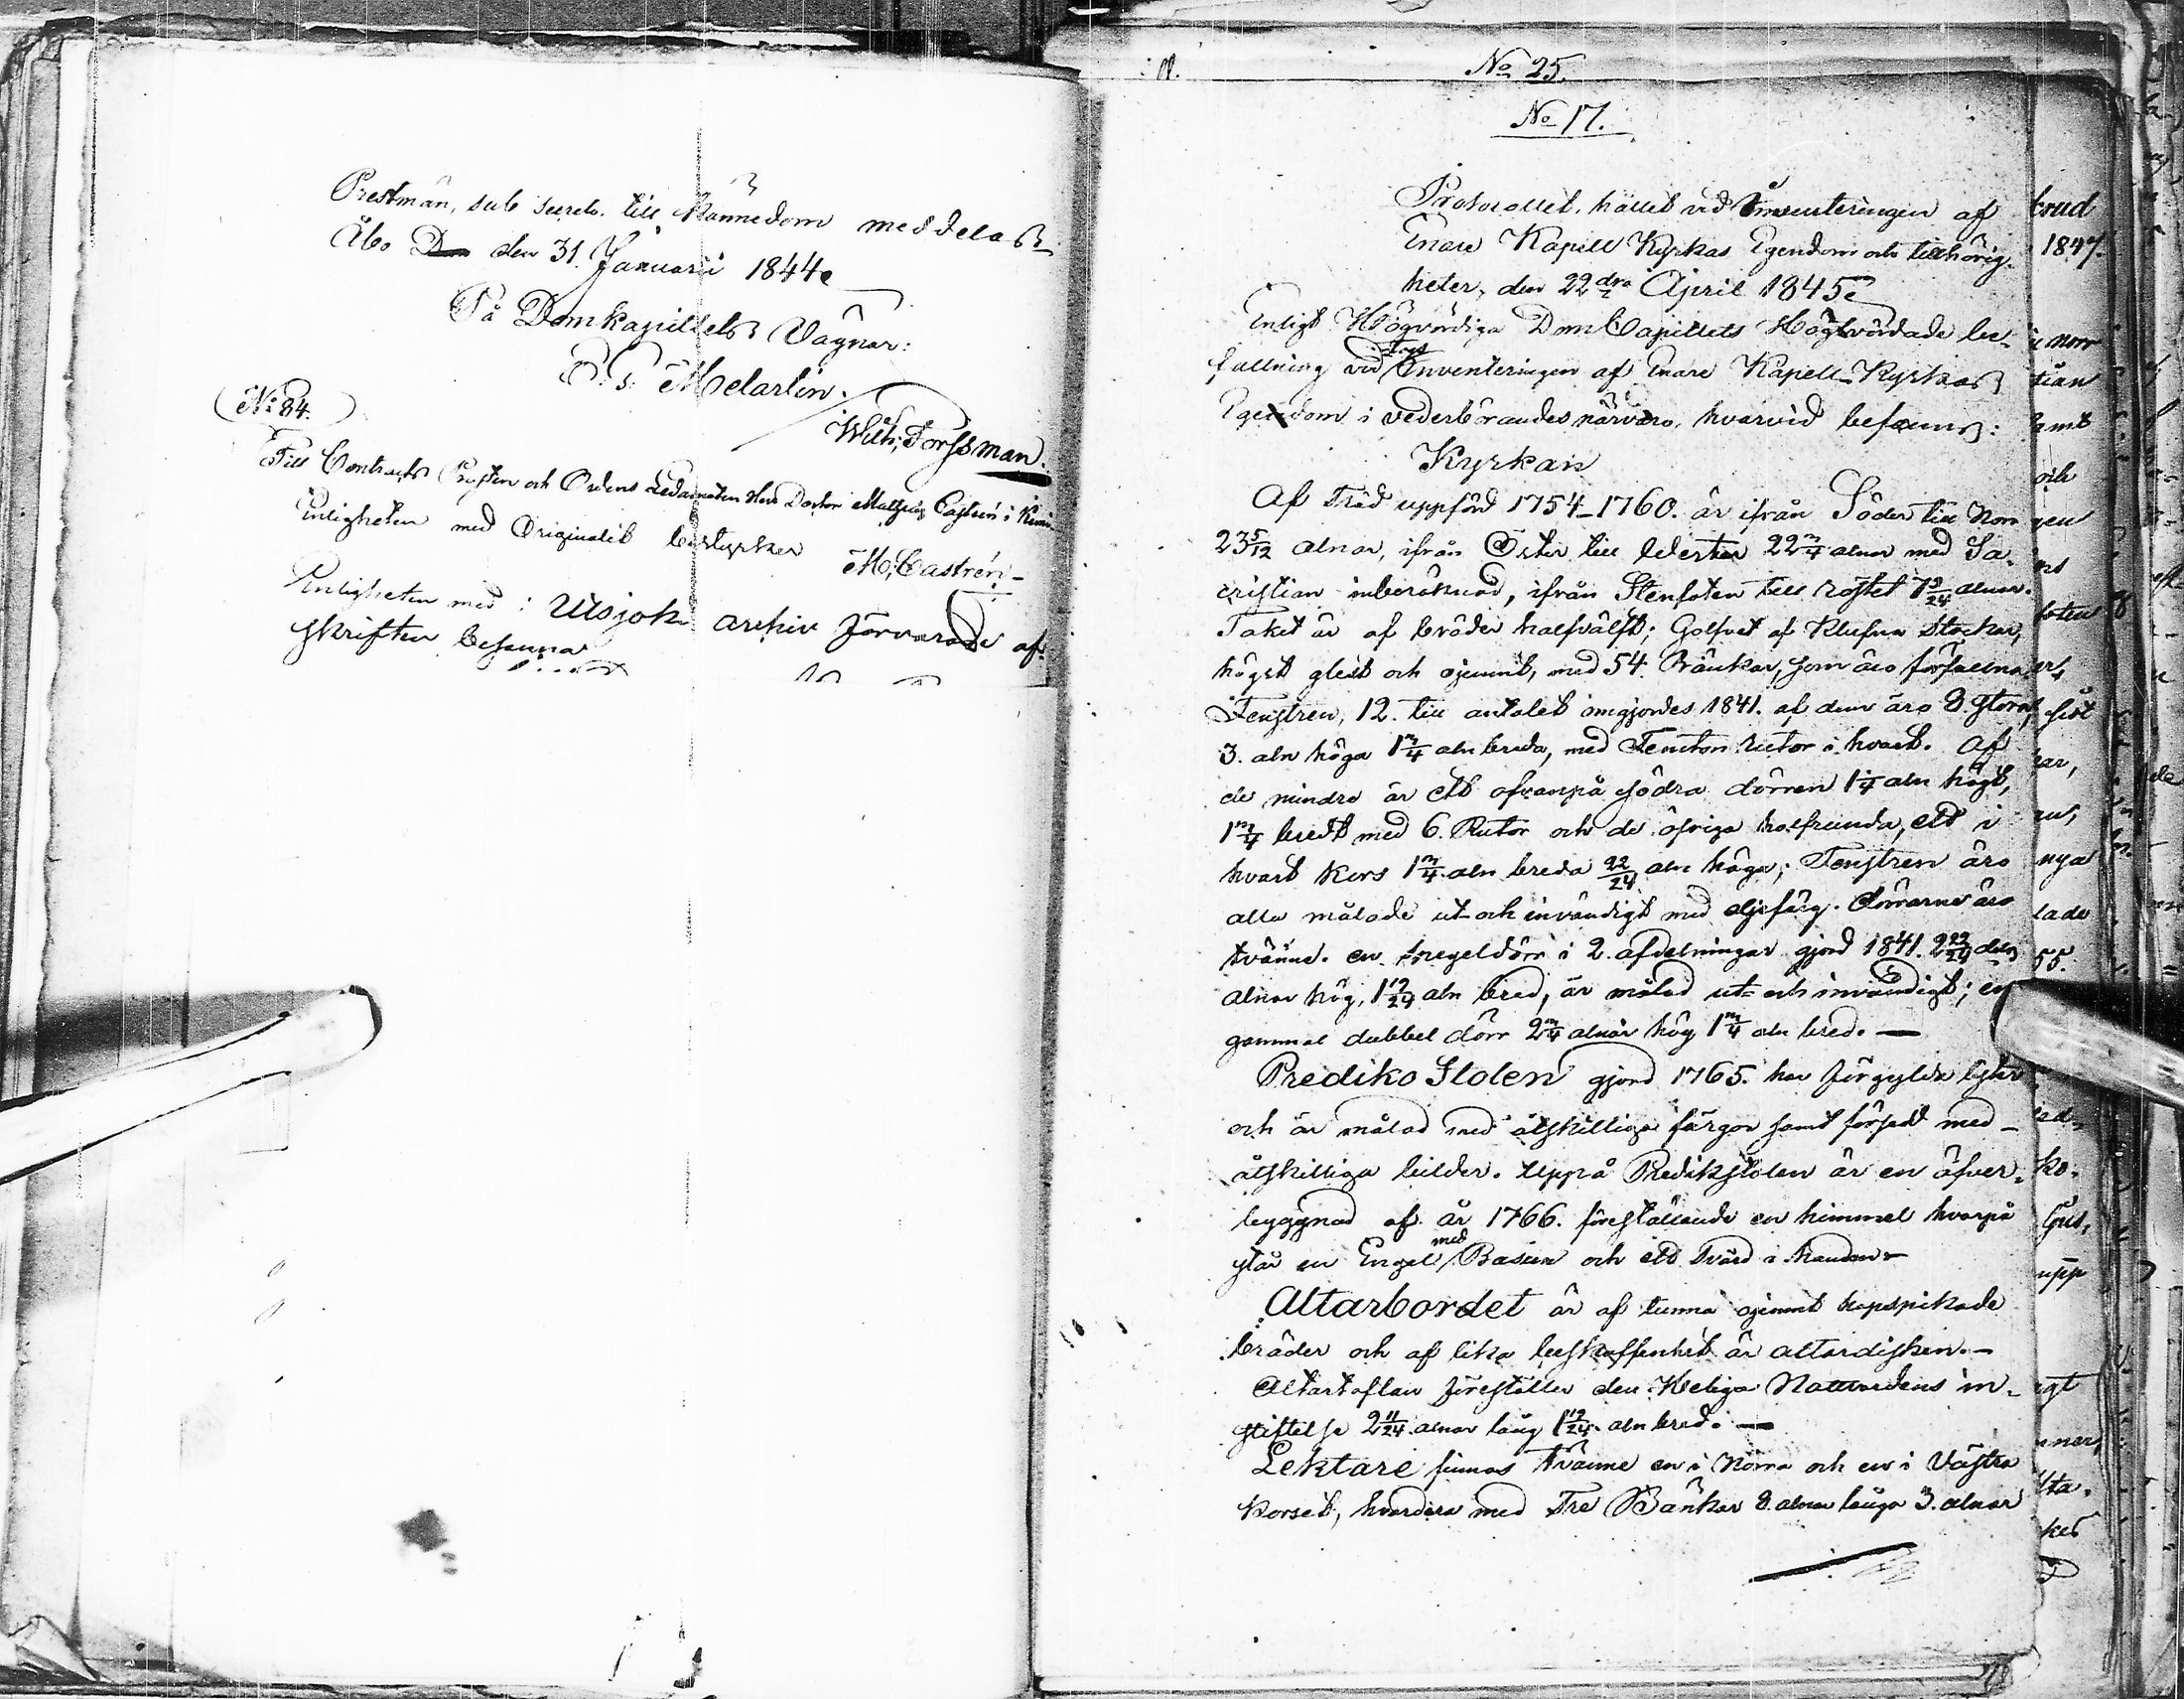 Prestmän, sub secreto till kännedom meddelas
Åbo den 31. Januarii 1844.
På Domkapitlets Vägnar:
Melartin.
Wilh. Forssman.
(No 84.)
Till Contracts Prosten och Ordens Ledamoten Herr Doctor Matthias Castrén i Kemi
Enligheten med Originalet bestyrker
M. Castrén
Enligheten med i Utsjoki archiv förvarade af-
skriften
No 25.
No 17.
Protocollet, hållet vid Inventeringen af
Enare Kapell Kyrkas Egendom och tillhörig-
heter, den 22dra April 1845.
Enligt Högvördiga DomCapitlets Högtvördade be-
fallning vid Inventeringen af Enare Kapell-Kyrkas
Egendom i vederbörandes närvaro, hvarvid befanns:
Kyrkan
Af Träd uppförd 1754-1760. är ifrån Söder till Norr
23 5/12 alnar, ifrån Öster till Wester 22 3/4 alnar med Sa-
cristian inberäknad, ifrån Stenfoten till röstet alnar.
Taket är af bräder halfvälft; Golfvet af klufna Stockar,
högst glest och ojemnt, med 54. Bänkar, som äro förfallna.
Fenstren, 12. till antalet omgjordes 1841. af dem äro 8. stora,
3. aln höga 1 3/4 aln breda, med Femton rutor i hvart. Af
de mindre är ett ofvanpå södra dörren 1 1/4 aln högt,
1 3/4 bredt med 6. Rutor och de öfriga halfrunda, ett i
hvart kors 1 3/4 aln breda 22/24 aln höga; Fenstren äro
alla målade ut- och invändigt med oljefärg. Dörrarne äro
tvänne. en spegeldörr i 2. afdelningar gjord 1841. 2 22/24
alnar hög, 1 19/24 aln bred, är målad ut- och invändigt; en
gammal dubbel dörr 2 3/4 alnar hög 1 3/4 aln bred. —
Prediko Stolen gjord 1765. har förgylda lyster
och är målad med åtskilliga färgor samt försedd med
åtskilliga bilder. Uppå Predikstolen är en öfver-
byggnad af år 1766. föreställande en himmel hvarpå
står en Engel med Basun och ett Svärd i handen —
Altarbordet är af tunna ojemnt hopspikade
bräder och af lika beskaffenhet är altardisken. —
Altartaflan föreställer den Heliga Nattvardens in-
stiftelse 2 11/24 alnar lång 1 19/24 aln bred. —
Lektare finnas tvänne en i Norra och en i Västra
Korset, hvardera med Tre Bänkar 8. alnar långa 3. alnar